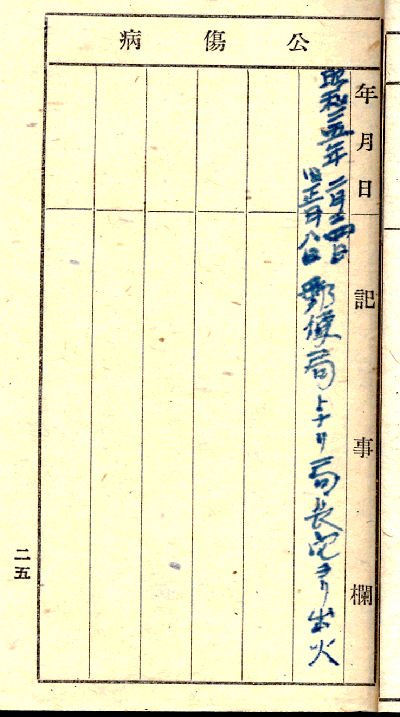 公傷病
年月日
記事欄
昭和二五年 二月二四日
旧正月八日
郵便局トナリ局長宅ヨリ出火
二五